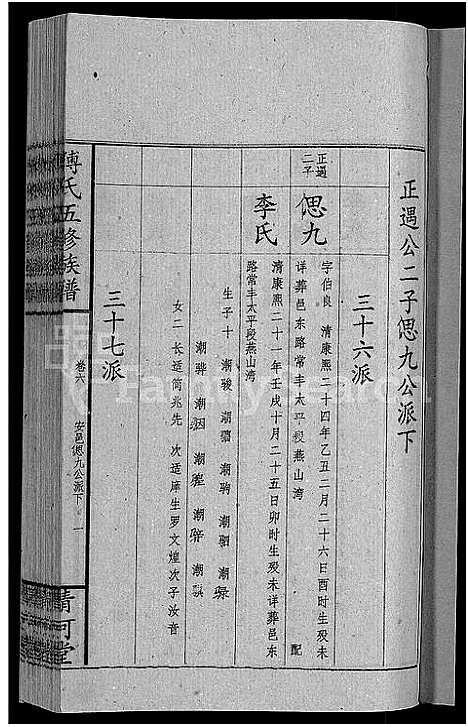 正遇公二子偲九公派下
三十六派
正遇二子
偲九
字伯良 清康熙二十四年乙丑二月二十六日酉时生殁未
详葬邑东路常丰太平段燕山湾 配
李氏
清康熙二十一年壬戌十月二十五日卯时生殁未详葬邑东
路常丰太平段燕山湾
生子十 潮骏 潮骝 潮驹 潮驷 潮
潮骅 潮骃 潮 潮骍 潮骐
女二 长适简兆先 次适庠生罗文煌次子汝音
三十七派
傅氏五修族谱
卷六
安邑偲九公派下 一
清河堂
FamilySearch